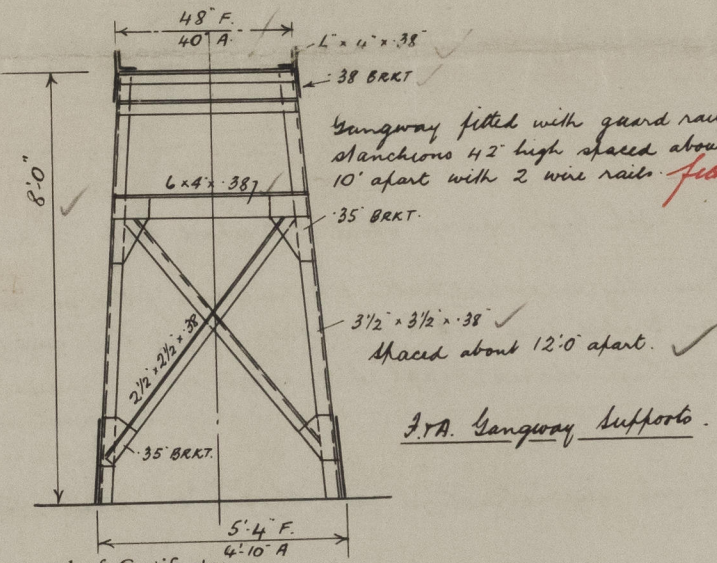 48" F.
40" A.
4" × 4" × ·38"
·38 BRKT
Gangway fitted with guard rail
stanchions 42" high spaced about
10' apart with 2 wire rails.
8'-0"
6 × 4 × ·38"
·35" BRKT.
3½" × 3½" × ·38"
Spaced about 12'-0" apart.
2½" × 2½" × ·38
F.&A. Gangway Supports.
·35" BRKT.
5'-4" F.
4'-10" A